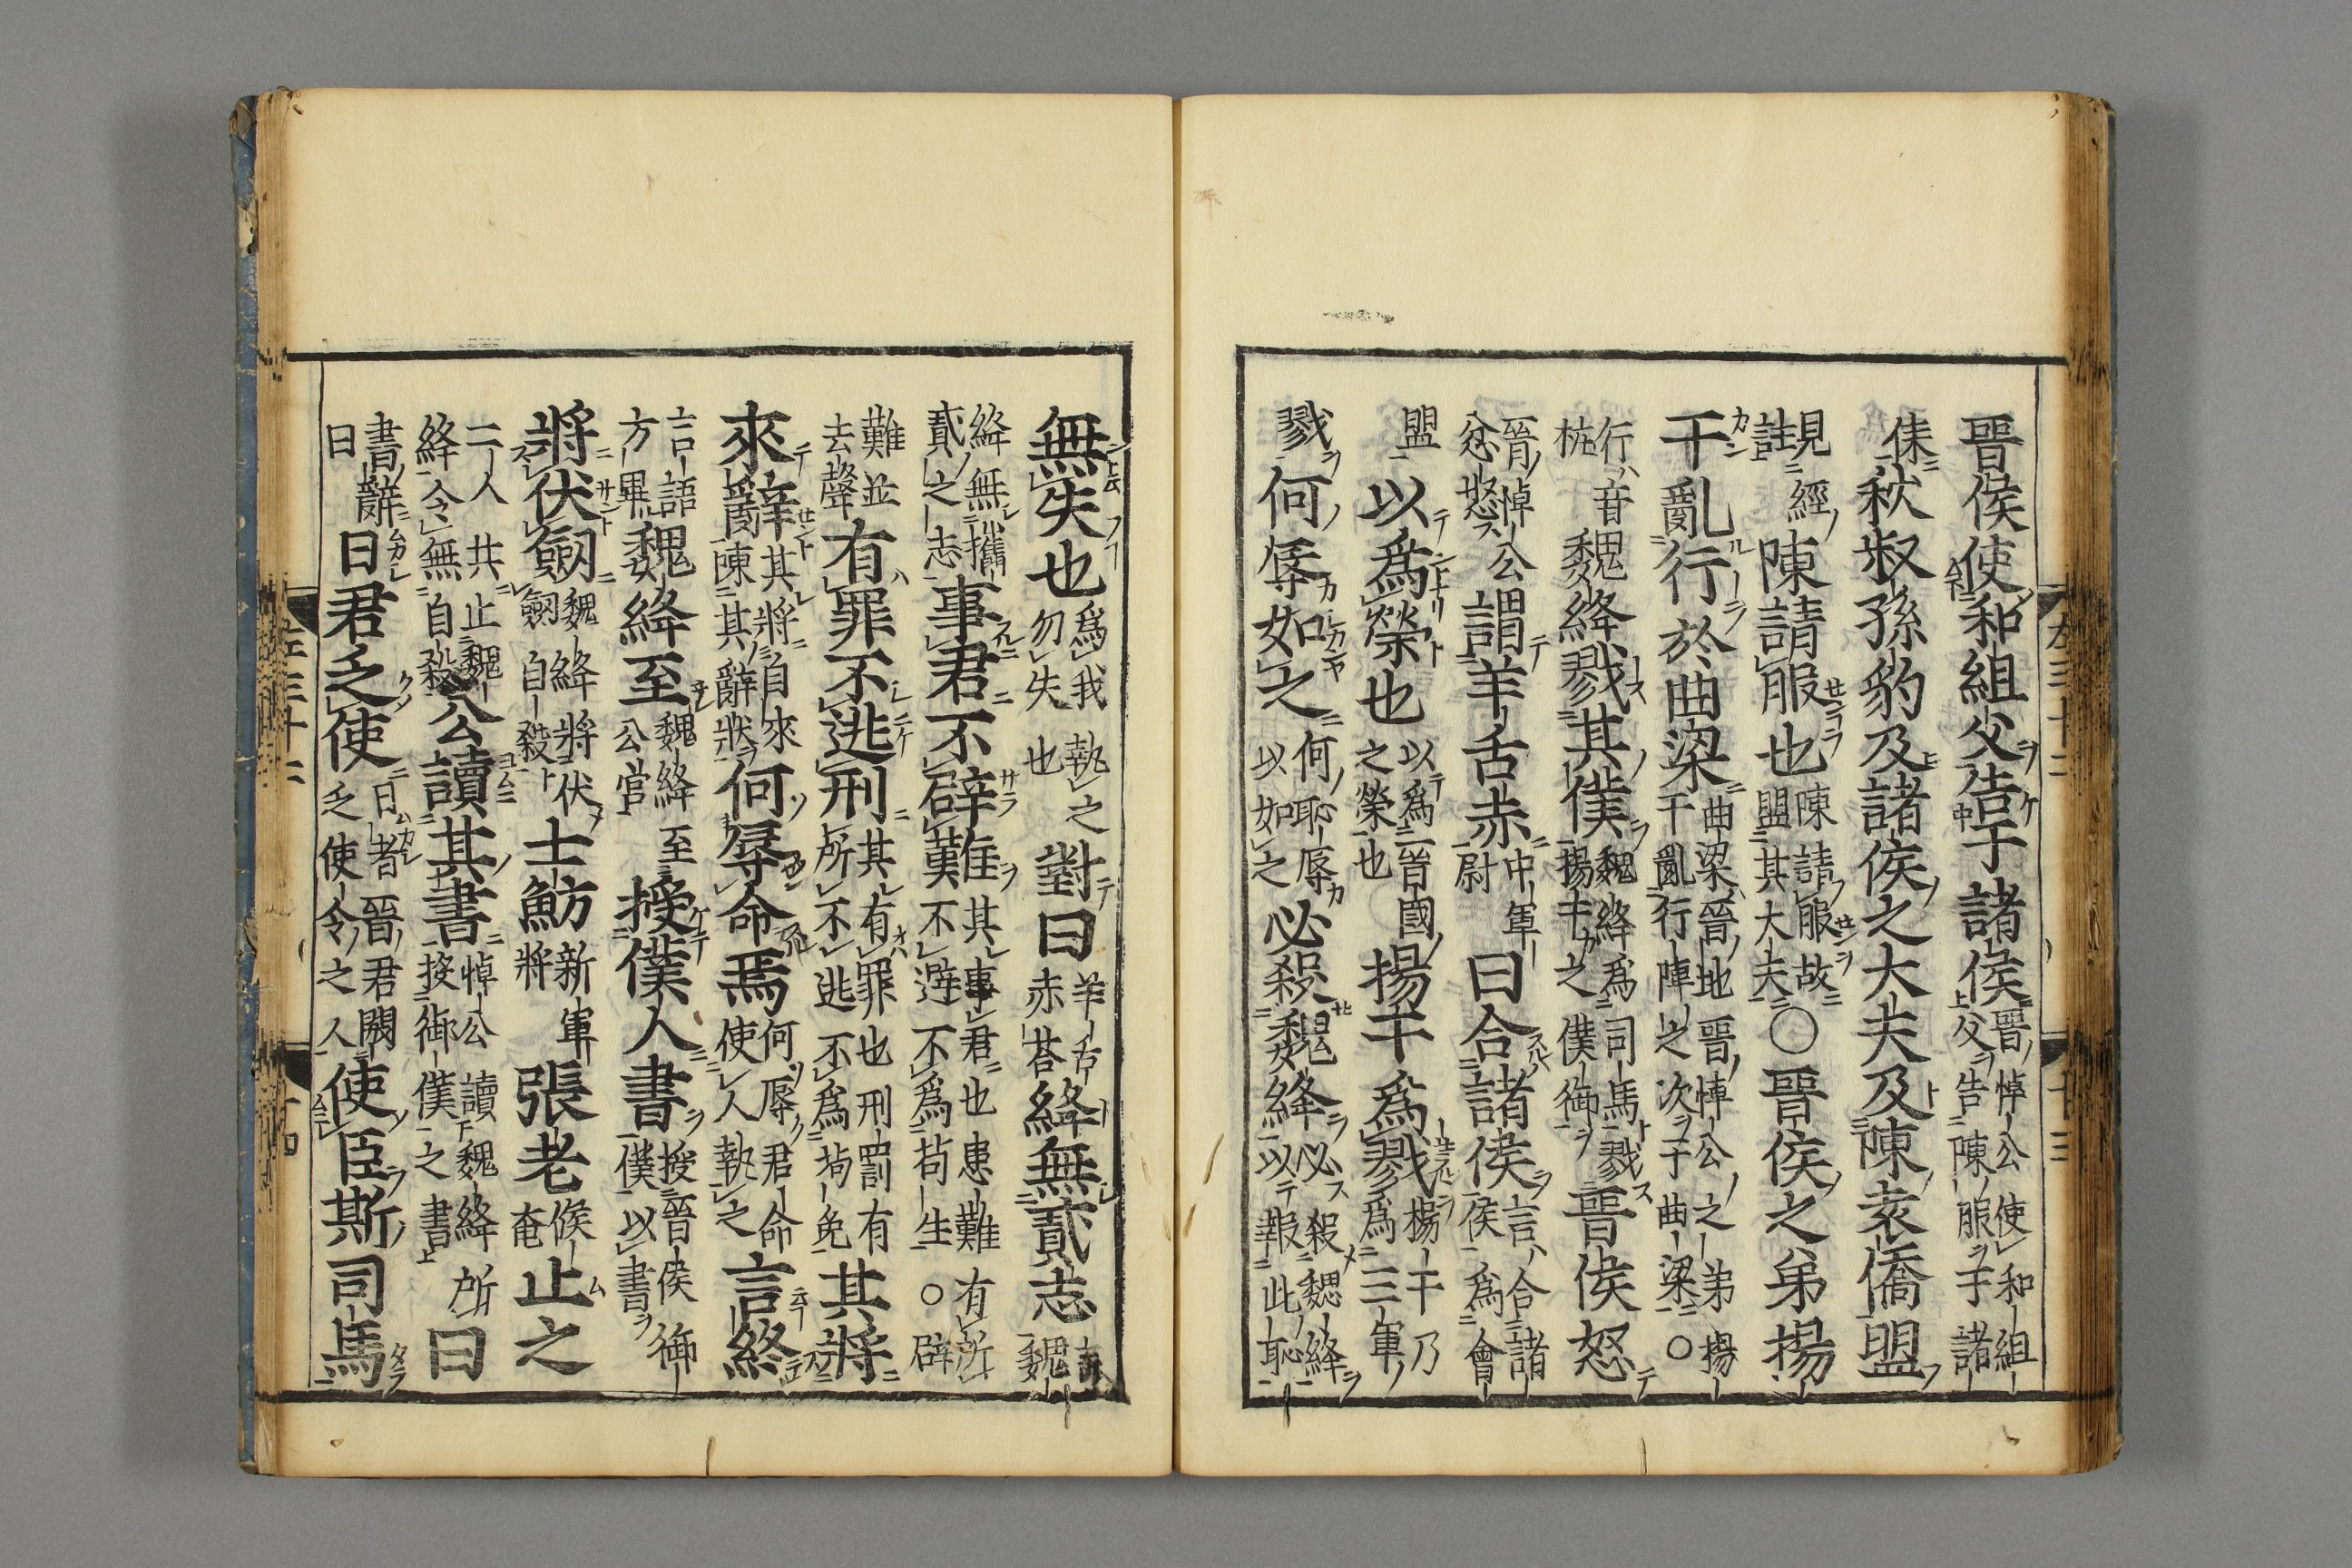 晋侯使和組父告于諸侯晋悼公使和組父告陳服于諸
侯秋叔孫豹及諸侯之大夫及陳袁僑盟
見經註陳請服也陳請服故盟其大夫〇晋侯之弟揚
干亂行於曲梁曲梁晋地干亂行陣之次于曲梁晋悼公之弟揚〇
行音桄魏絳戮其僕魏絳為司馬戮揚干之僕御晋侯怒
晋悼公忿怒謂羊舌赤中軍尉曰合諸侯言合諸侯為會
盟以為榮也以為吾國之榮也揚干為戮揚干乃為三軍
戮何辱如之何恥辱以如之必殺魏絳必殺魏絳以報此恥
無失也為我執之勿失也對曰羊舌赤荅絳無貳志言魏
絳無攜貳之志事君不辟難其事君也患難有所不避不為苟生〇辟
難並去聲有罪不逃刑其有罪也刑罰有所不逃不為苟免其將
來辭其將自來陳其辭狀何辱命焉何辱君命使人執之言終
言語方畢魏絳至魏絳至公宮授僕人書授晋侯御僕以書
將伏劔魏絳將伏劔自殺士魴新軍將張老候奄止之
二人共止魏絳令無自殺公讀其書悼公讀魏絳所授御僕之書曰
書辭曰曰君乏使日者晋君闕乏使令之人使臣斯司馬